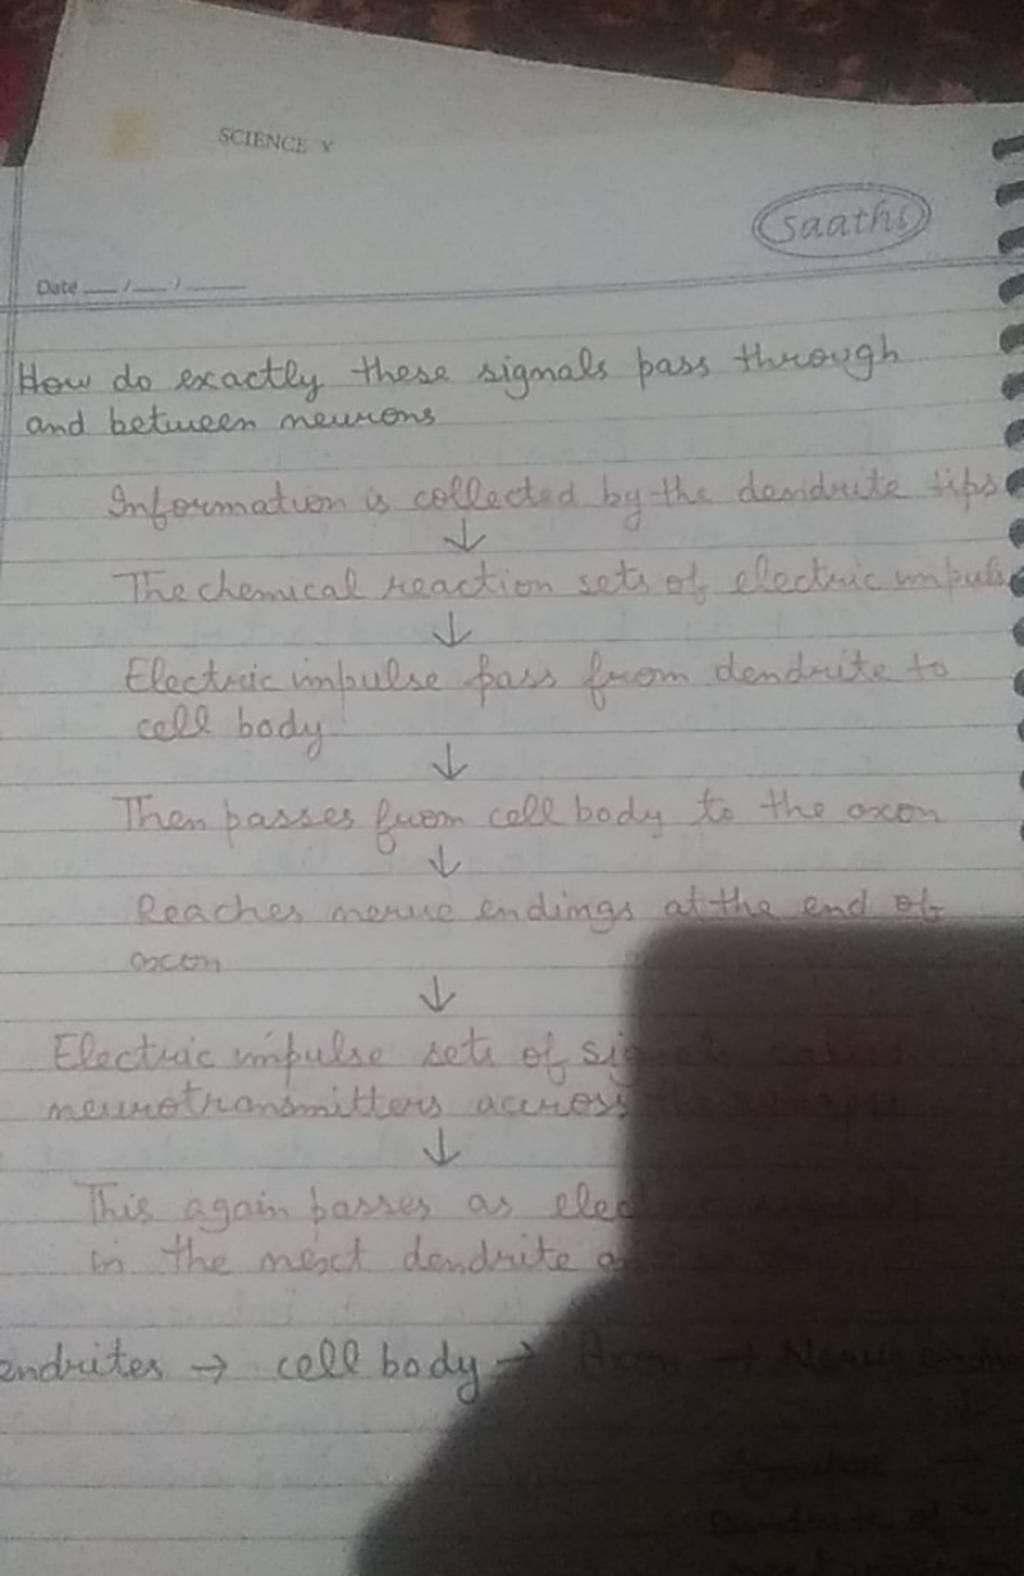 SCIENCE X
Saathi
Date __/__/____
How do exactly these signals pass through
and between neurons
Information is collected by the dendrite tips
↓
The chemical reaction sets of electric impuls
↓
Electric impulse pass from dendrite to
cell body
↓
Then passes from cell body to the axon
↓
Reaches nerve endings at the end of
axon
↓
Electric impulse sets of
neurotransmitters accross
↓
This again passes as
in the next dendrite
endrites → cell body → Axon →